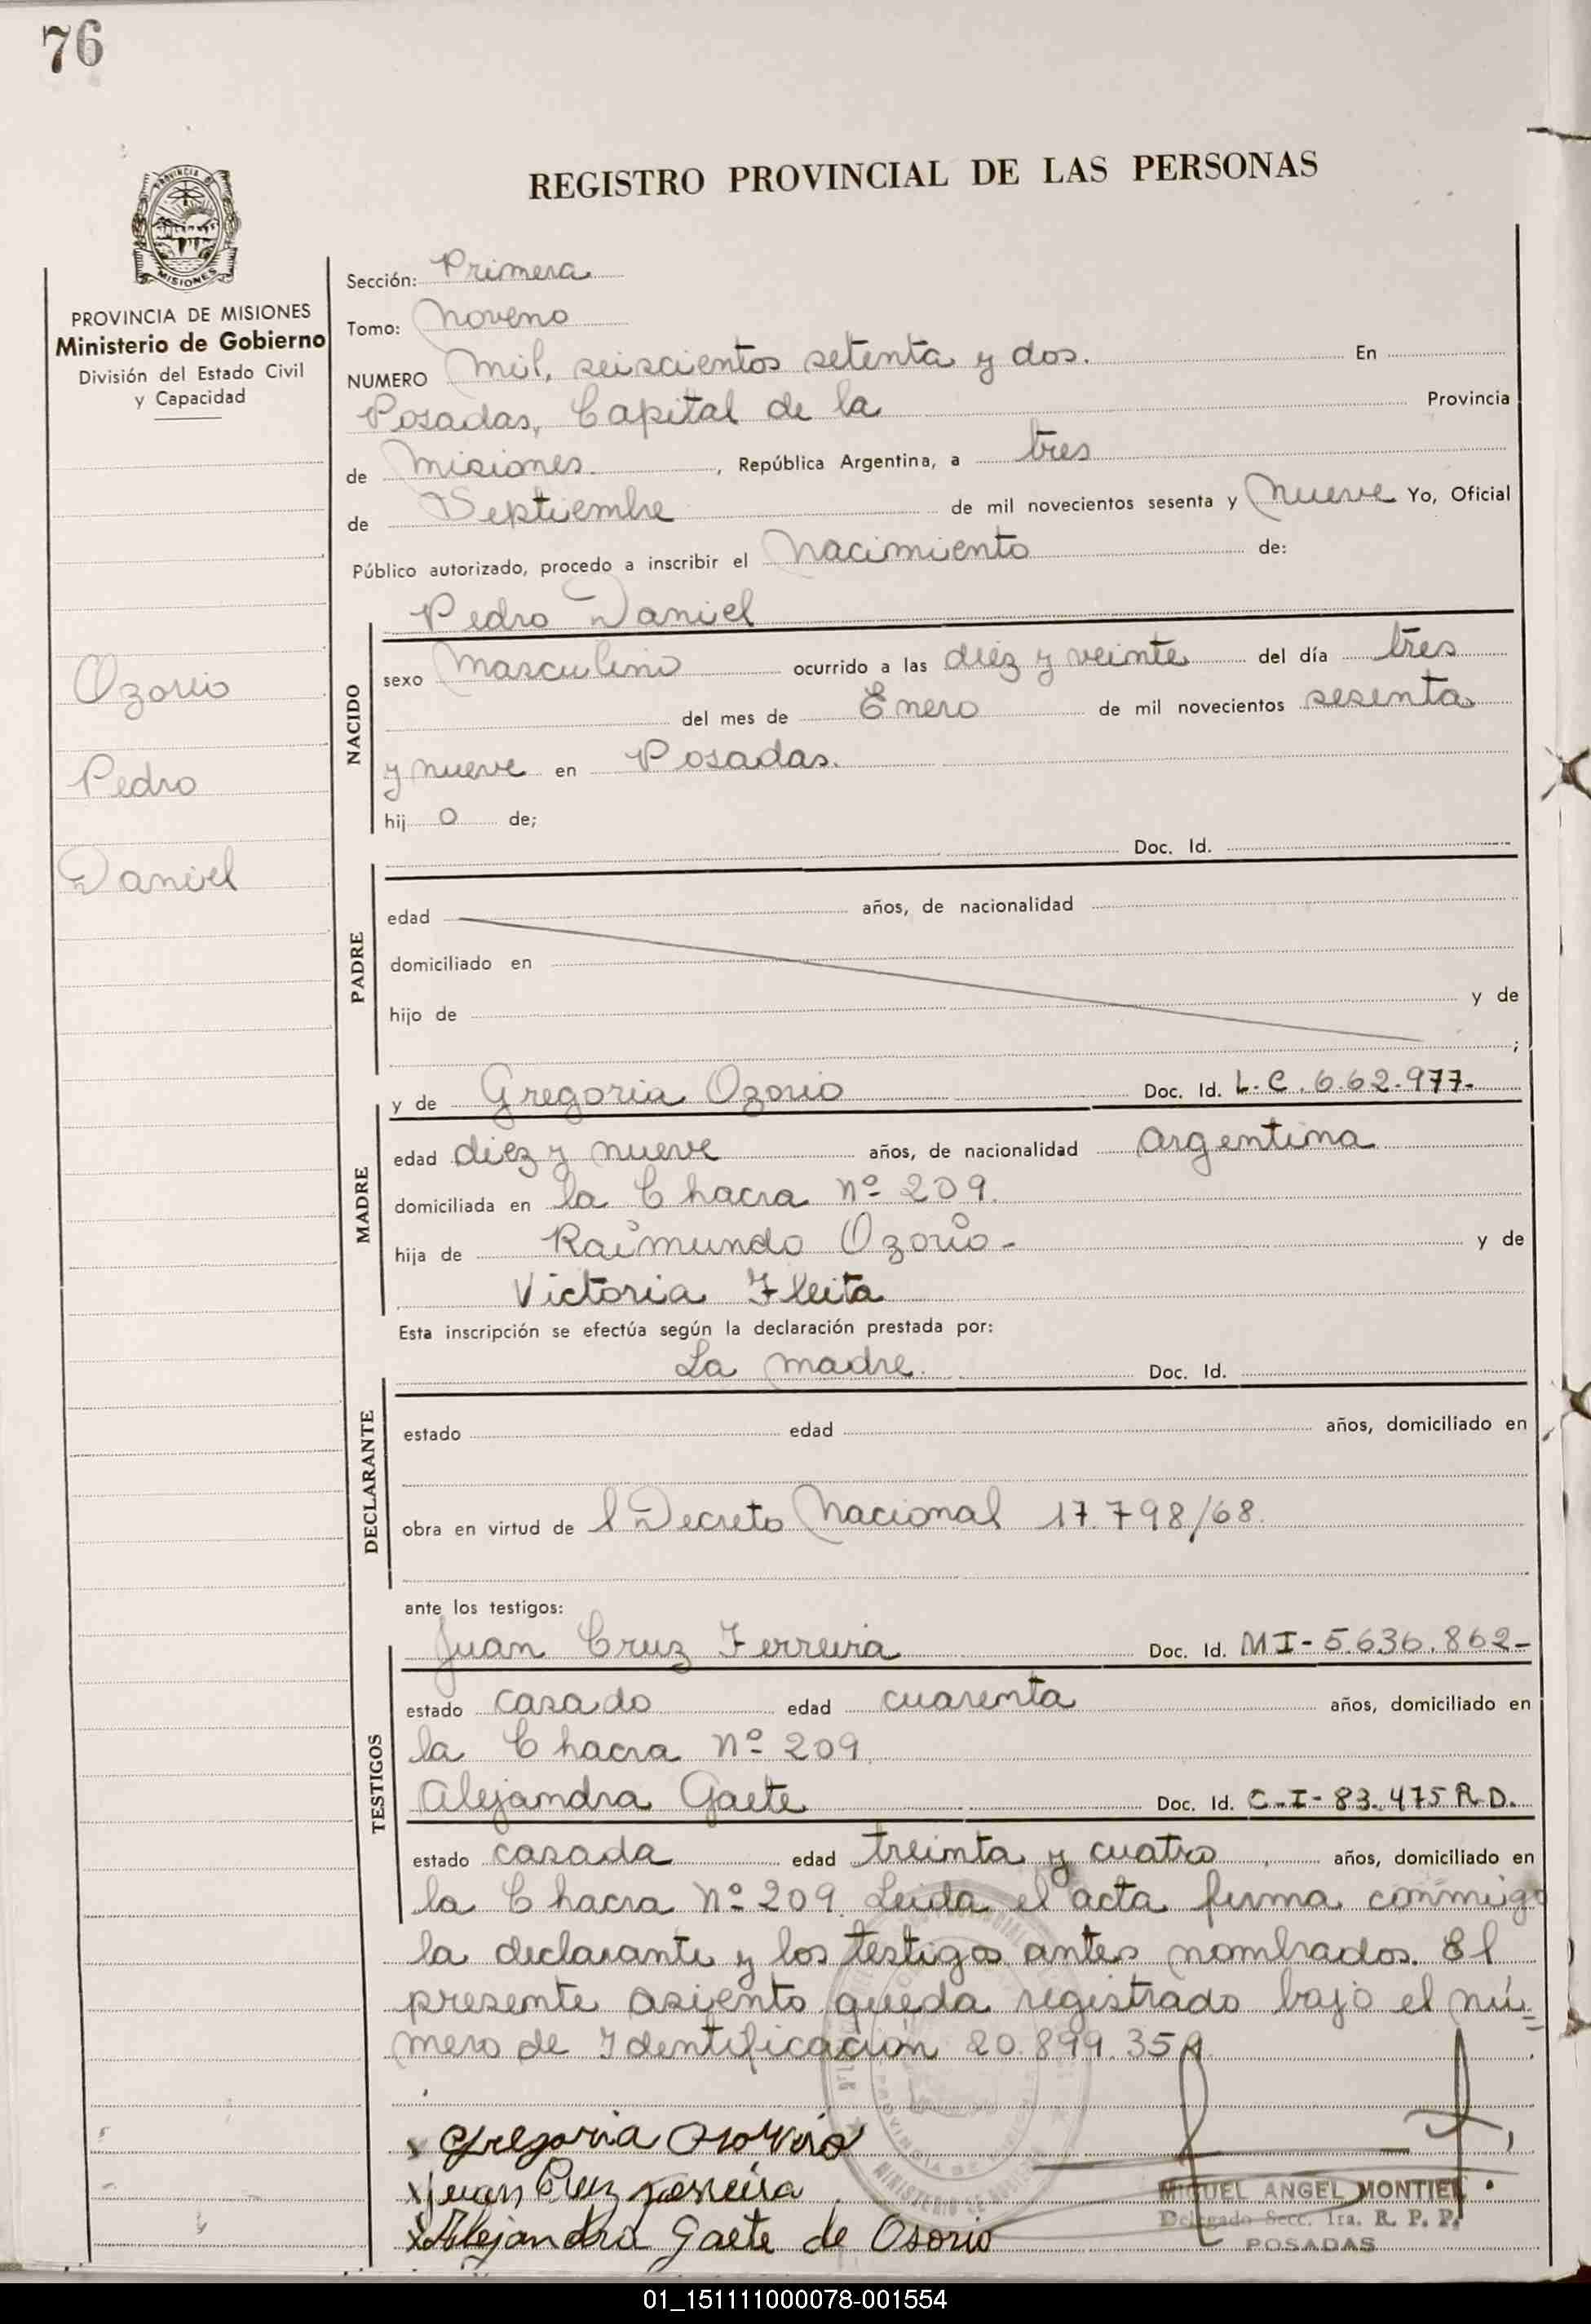 76
REGISTRO PROVINCIAL DE LAS PERSONAS
PROVINCIA DE MISIONES
Ministerio de Gobierno
División del Estado Civil
y Capacidad
Ozorio
Pedro
Daniel
Sección: Primera
Tomo: Noveno
NUMERO Mil, seiscientos setenta y dos. En
Posadas, Capital de la Provincia
de Misiones. , República Argentina, a tres
de Septiembre de mil novecientos sesenta y Nueve Yo, Oficial
Público autorizado, procedo a inscribir el Nacimiento de:
Pedro Daniel
NACIDO
sexo Masculino ocurrido a las diez y veinte del día tres
del mes de Enero de mil novecientos sesenta
y nueve en Posadas.
hij o de;
Doc. Id.
PADRE
edad años, de nacionalidad
domiciliado en
hijo de y de
;
y de Gregoria Ozorio Doc. Id. L.C. 6.62.977-
MADRE
edad diez y nueve años, de nacionalidad argentina
domiciliada en la Chacra Nº 209.
hija de Raimundo Ozorio - y de
Victoria Fleita
Esta inscripción se efectúa según la declaración prestada por:
La madre. Doc. Id.
DECLARANTE
estado edad años, domiciliado en
obra en virtud de l Decreto Nacional 17.798/68.
ante los testigos:
Juan Cruz Ferreira Doc. Id. MI-5.636.862-
TESTIGOS
estado casado edad cuarenta años, domiciliado en
la Chacra Nº 209.
Alejandra Gaete Doc. Id. C-I-83.475 R.D.
estado casada edad treinta y cuatro años, domiciliado en
la Chacra Nº 209. Leida el acta firma conmigo
la declarante y los testigos antes nombrados. El
presente asiento queda registrado bajo el nú=
mero de Identificación 20.899.359
Gregoria Osorio
x Juan Cruz Ferreira
x Alejandra Gaete de Osorio
MIGUEL ANGEL MONTIEL
Delegado Secc. 1ra. R. P. P.
POSADAS
01_151111000078-001554